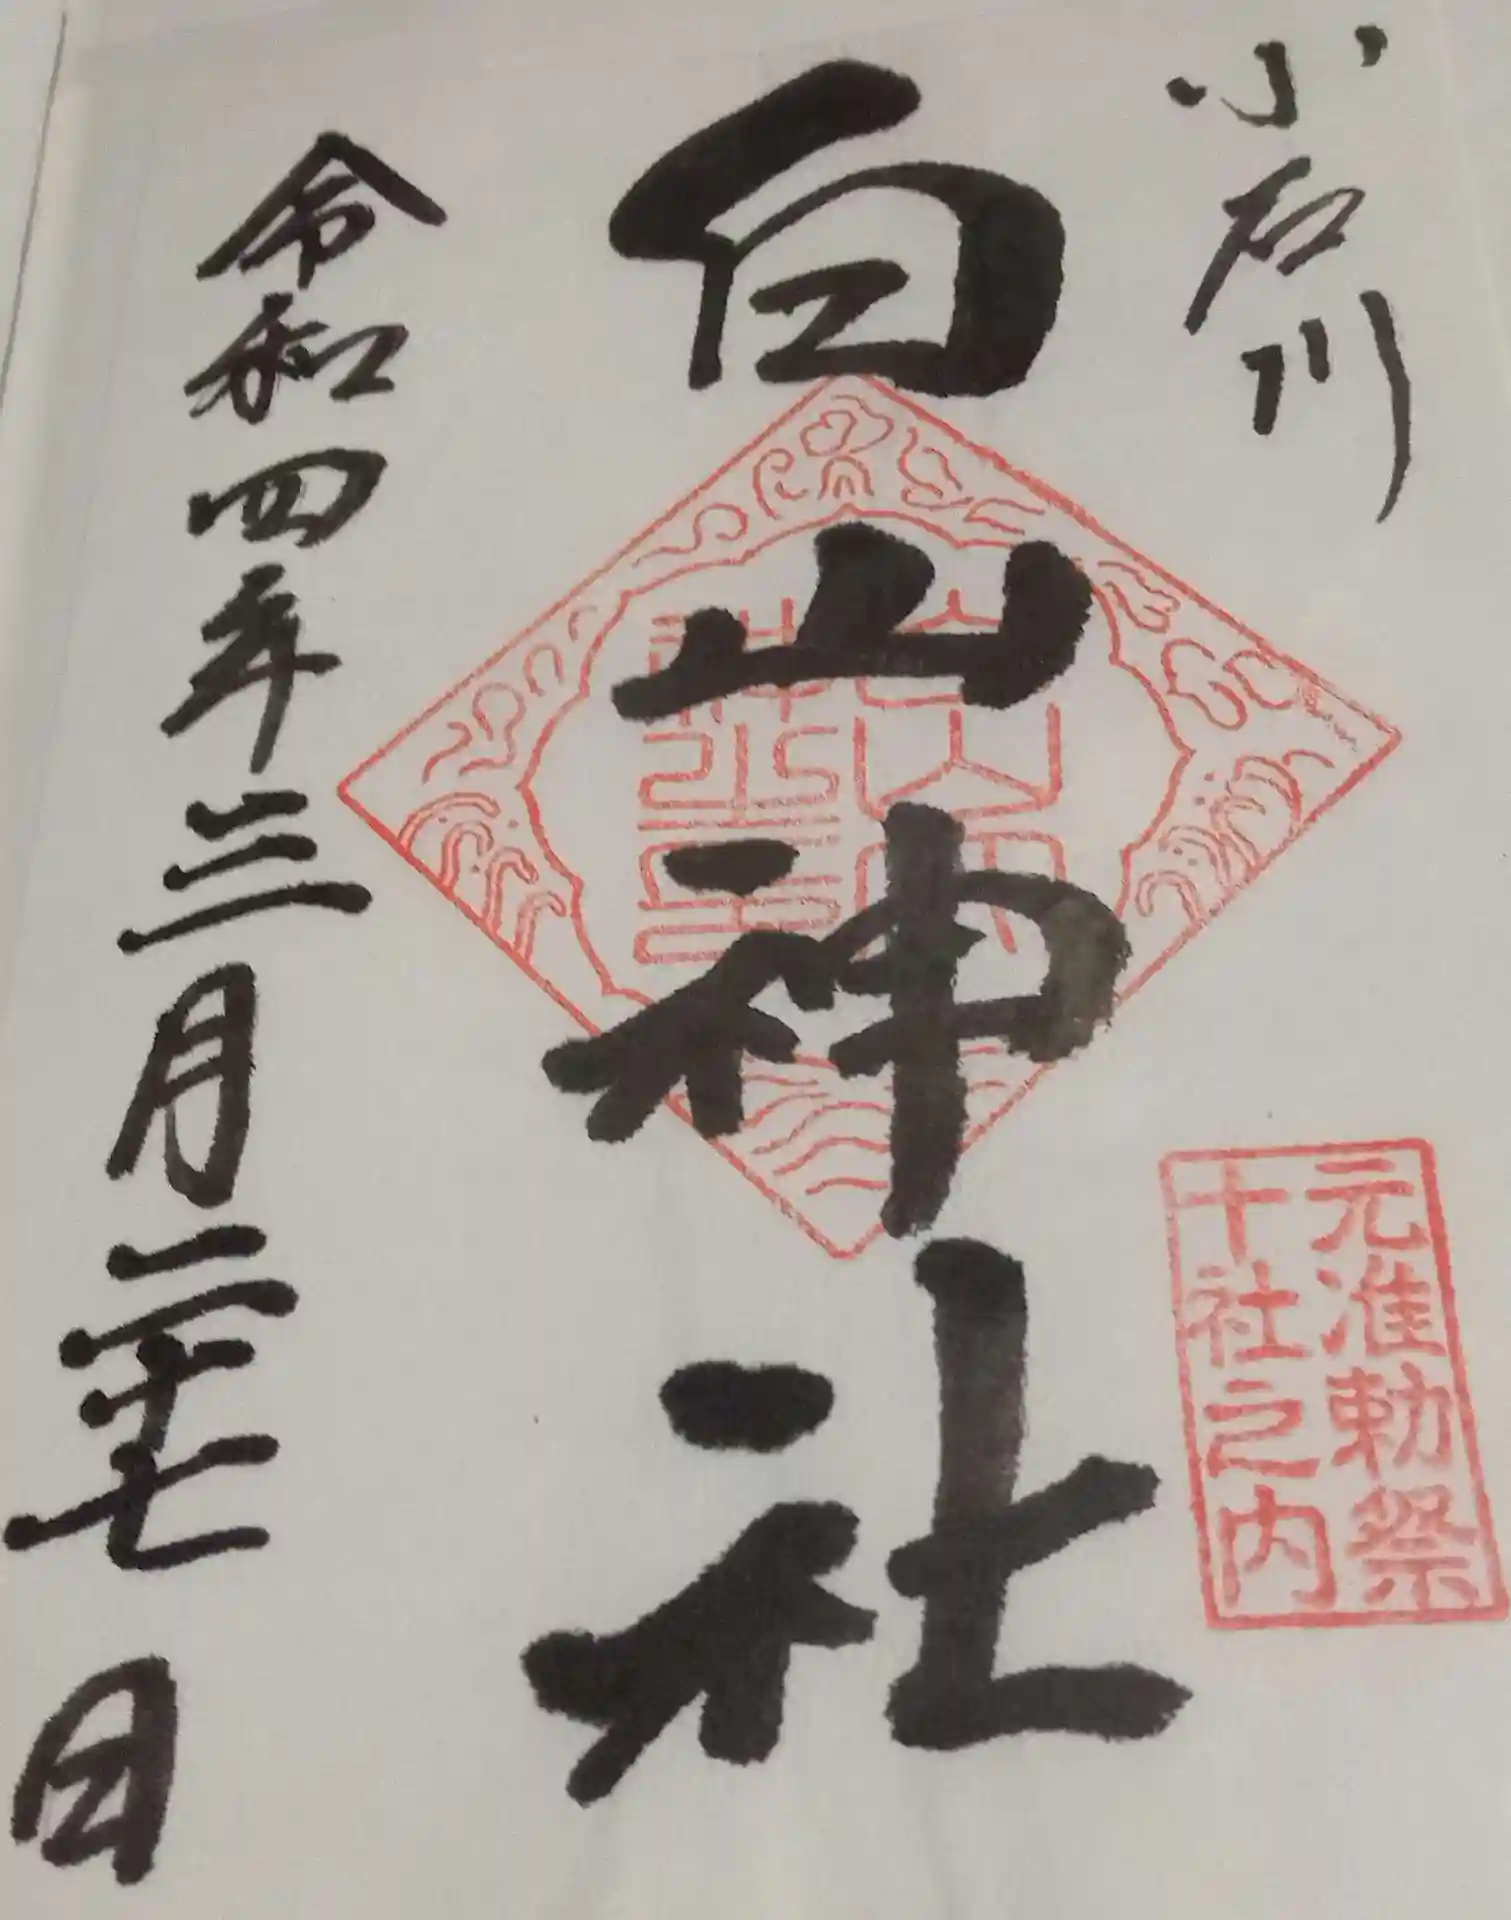 小石川
白山神社
元准勅祭
十社之内
令和四年三月二十七日